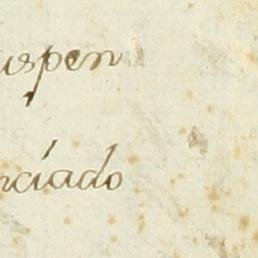 uspen
nciado